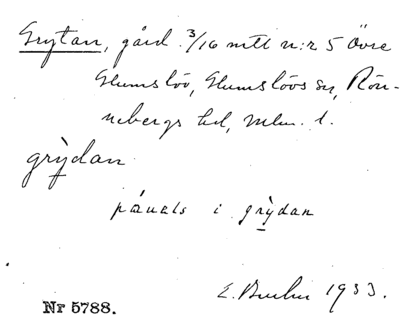 Grytan, gård 3/16 mtl n:r 5 Övre
Glumslöv, Glumslövs sn, Rön-
nebergs hd, Mlm. l.
grỳdan
páuals i grỳdan
E. 1933.
Nr 5788.